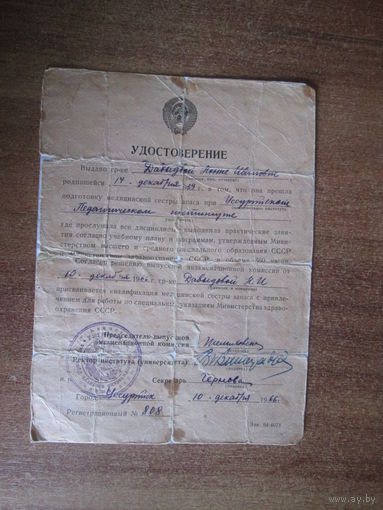 УДОСТОВЕРЕНИЕ
Выдано гр-ке Давыдовой Нонне Ивановне
родившейся 14 декабря 39 г. в том, что она прошла
подготовку медицинской сестры запаса при Уссурийском
Педагогическом институте
где прослушала все дисциплины и выполнила практические заня-
тия согласно учебному плану и программам, утвержденным Мини-
стерством высшего и среднего специального образования СССР
и Министерством здравоохранения СССР, в объеме часов.
Согласно решению выпускной экзаменационной комиссии от
10 декабря 1966 г. Давыдовой Н.И.
присваивается квалификация медицинской сестры запаса с правом
для работы по специальности указаниями Министерства здраво-
охранения СССР.
Председатель выпускной
экзаменационной комиссии
Ректор института (университета)
Секретарь
Город Уссурийск 10 декабря 1966 г.
Регистрационный № 808
Зак.
www.ay.by